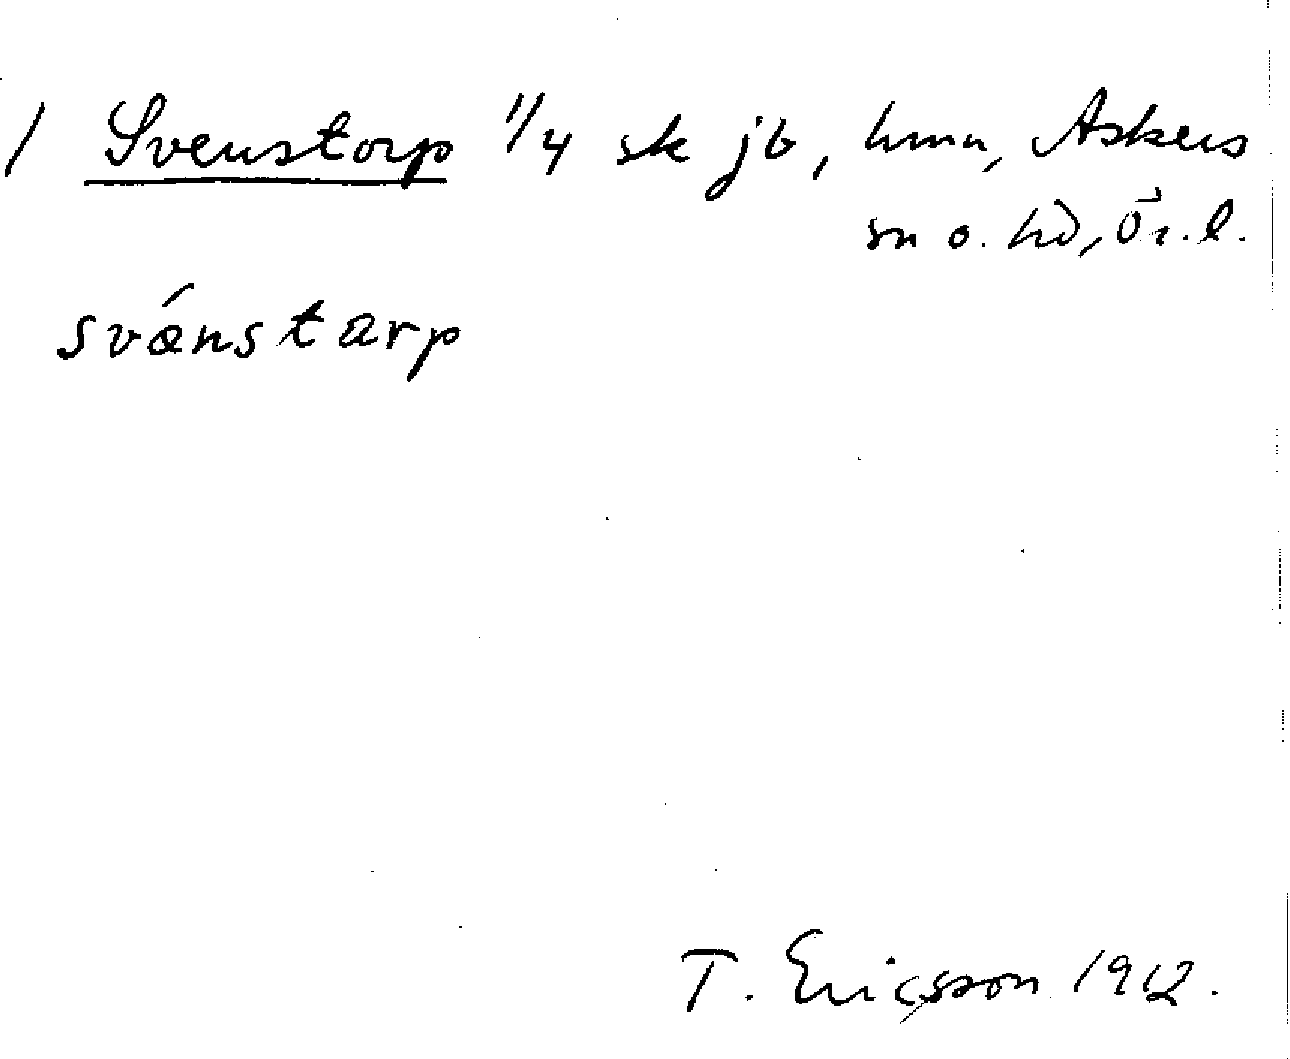 / Svenstorp 1/4 sk jb, hmn, Askers
sn o. hd, Ör. l.
svǽnstarp
T. Ericsson 1912.